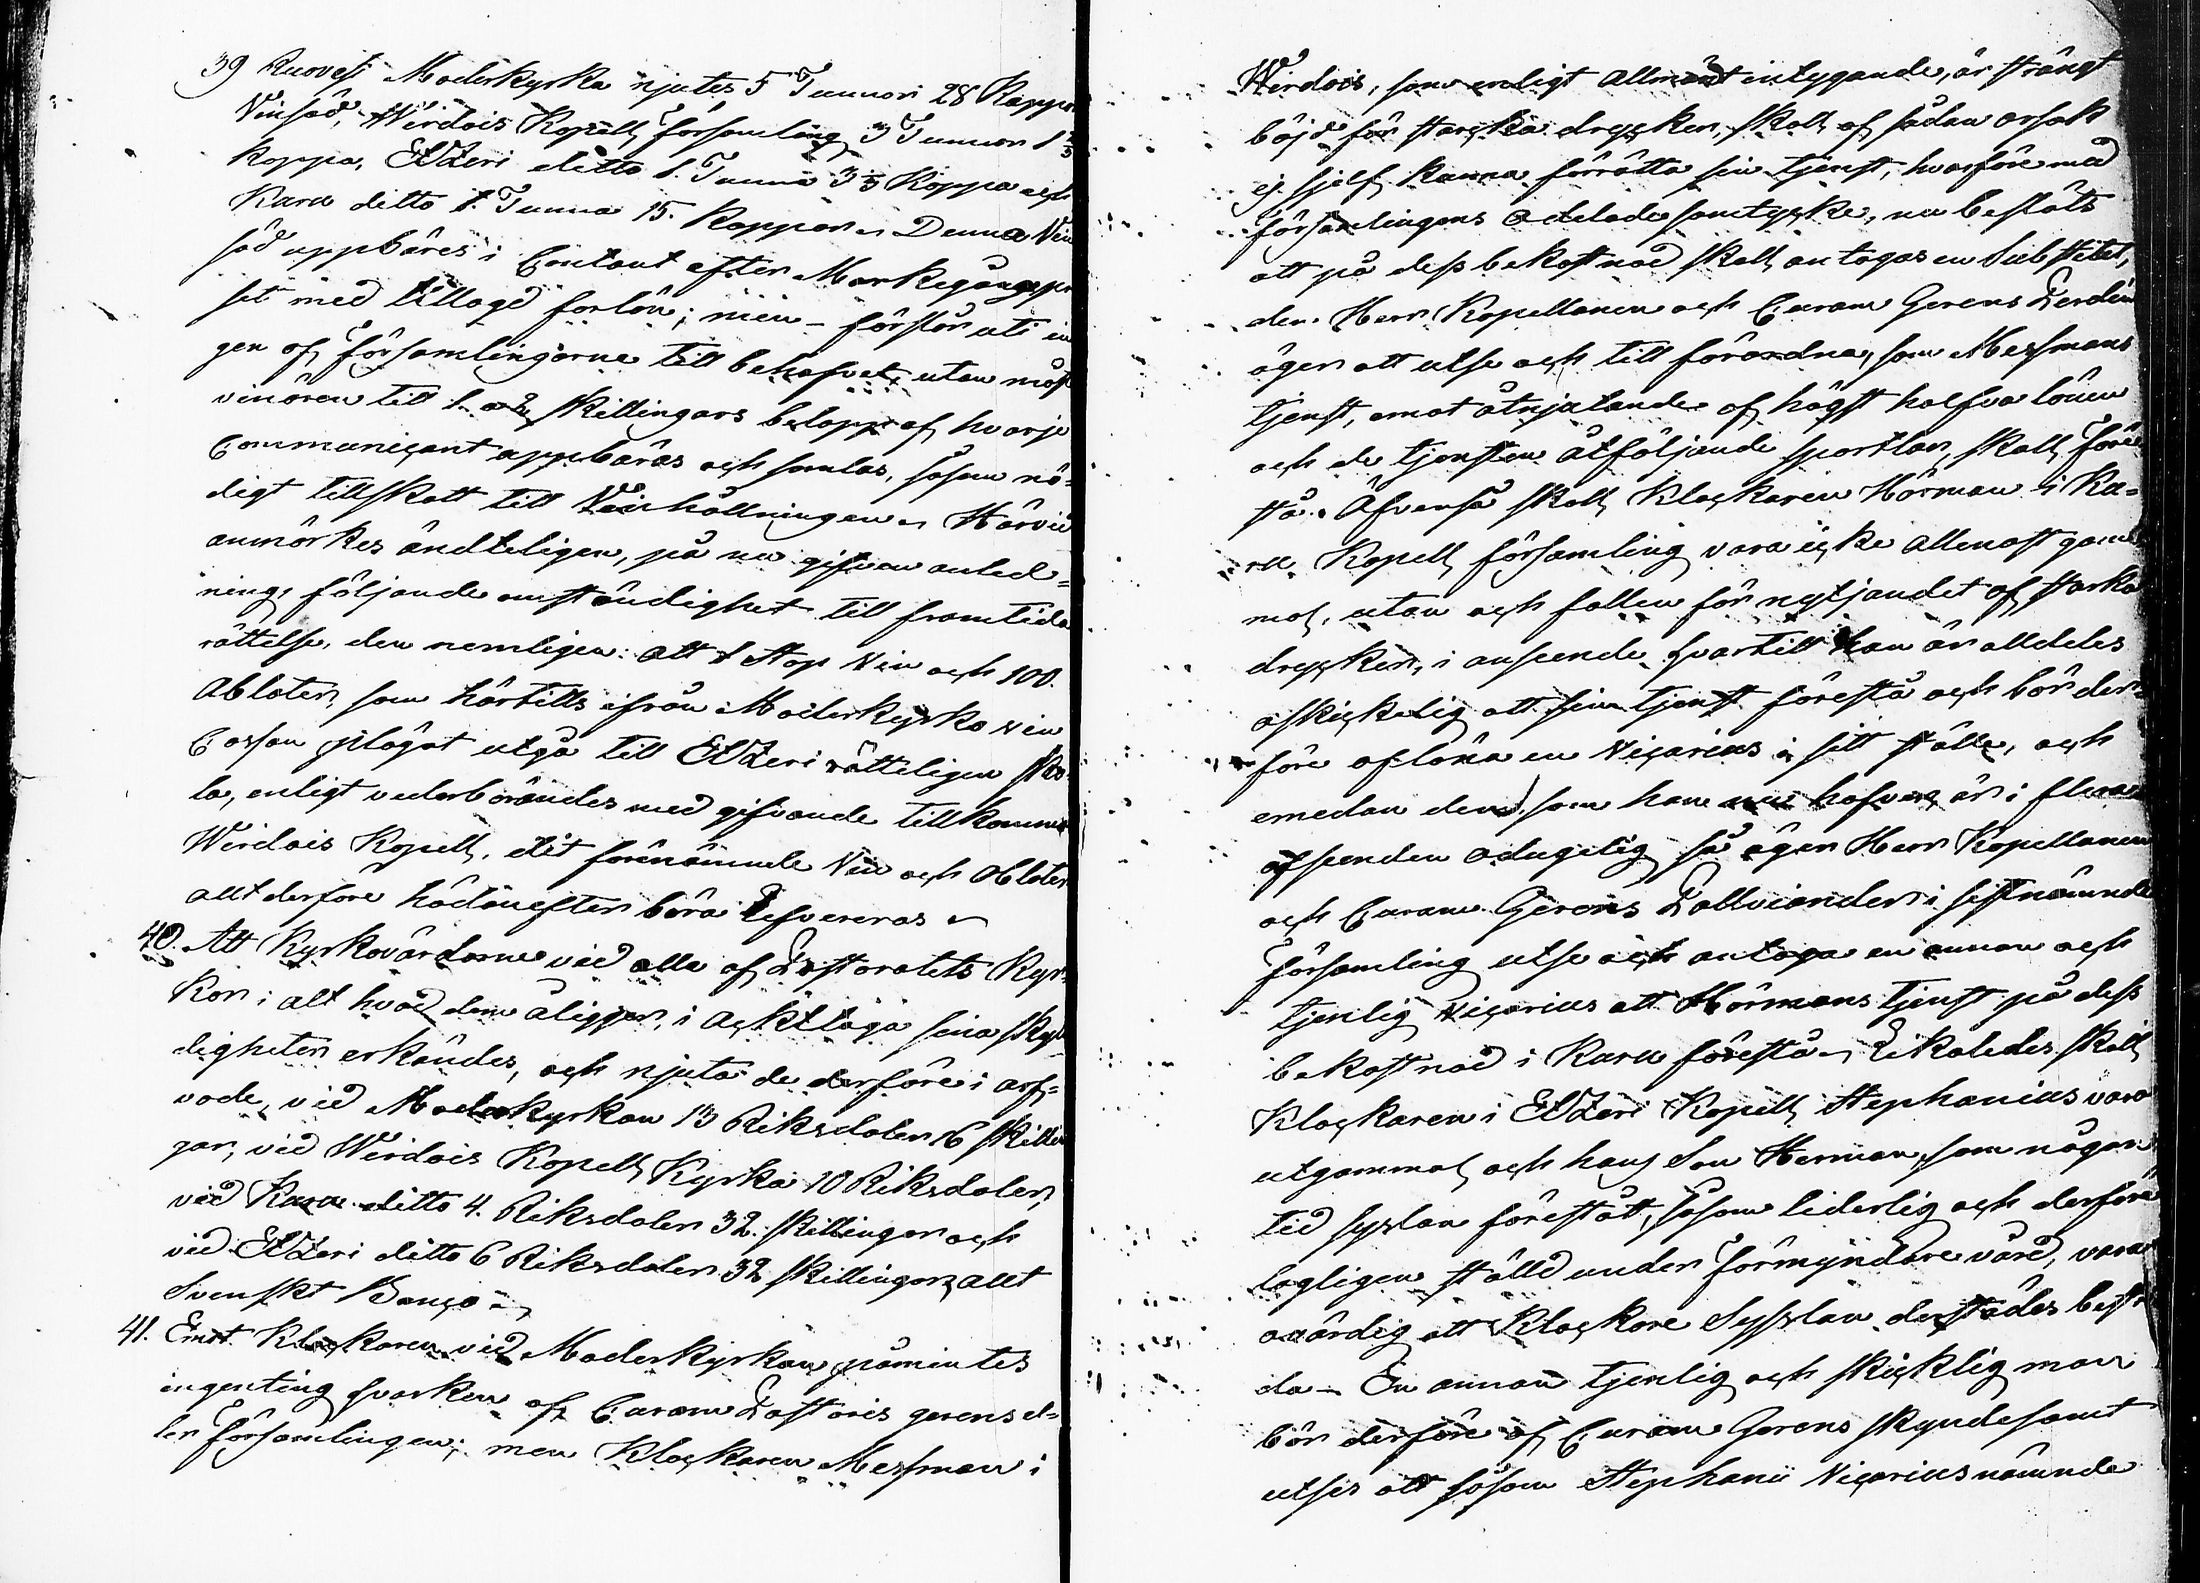 39 Ruovesi Moderkyrka njutes 5 Tunnor 28 Kappar
Vinsäd, Wirdois Kapell församling 3 Tunnor 1 2/3
kappa, Etzeri ditto 1. Tunna 3 1/3 kappa och
Kuru ditto 1. Tunna 15. kappar. Denna Vin
säd uppbäres i Contant efter Markegångspri
set med tillagd forlön; men förslår uti in
gen af församlingarne till behofvet, utan måste
vinören till 1. a 2 skillingars belopp af hvarje
Communicant uppbäras och samlas, såsom nö=
digt tillskott till Vinhållningen. Härvid
anmärkes ändteligen, på nu gifven anled=
ning, följande omständighet till framtida
rättelse, den nemligen: att 1 Stop Vin och 100.
Oblater, som härtills ifrån Moderkyrko vin
Cassan plägat utgå till Etzeri rätteligen sko
la, enligt vederbörandes medgifvande tillkomma
Wirdois Kapell, dit förenämnde Vin och Oblater
allt derföre hädanefter böra lefvereras.
40. Att Kyrkovärdarne vid alla af Pastoratets Kyr
kor i alt hvad dem åligger, i acktaga sina skyl
digheter erkändes, och njuta de derföre i arf=
vode, vid Moderkyrkan 13 Riksdaler 16 skillin
gar, vid Wirdois Kapell Kyrka 10 Riksdaler,
vid Kuru ditto 4. Riksdaler 32. skillingar och
vid Etzeri ditto 6 Riksdaler 32 skillingar, allt
Svenskt Banco.
41. Emot Klockaren vid Moderkyrkan påmintes
ingenting hvarken af Curam Pastoris gerens el=
ler församlingen; men Klockaren Messman i
Wirdois, som enligt allmänt intygande, är strängt
böjd för starcka drycker, skall af sådan orsak
ej sjelf kunna förrätta sin tjenst, hvarföre med
församlingens odelade samtycke, nu beslöts
att på dess bekostnad skall antagas en Substitut,
den Herr Kapellanen och Curam Gerens
äger att utse och till förordna, som Messmans
tjenst, emot åtnjutande af högst halfva lönen
och de tjensten åtföljande sportlar, skall före
stå. Äfvenså skall Klockaren Hörman i Ku=
ru Kapell församling vara icke allenast gam
mal, utan och fallen för nytjandet af starka
drycker, i anseende hvartill han är alldeles
oskickelig att sin tjenst förestå och bör der=
före aflöna en Vicarius i sitt ställe, och
emedan den, som han nu hafver, är i flera
afseenden oduglig, så äger Herr Kapellanen
och Curam Gerens Pallviander i sistnämnde
församling utse och antaga en annan och
tjenlig Vicarius att Hörmans tjenst på dess
bekostnad i Kuru förestå. Likaledes skall
Klockaren i Etzeri Kapell Stephanius vara
utgammal och hans Son Herman, som någon
tid syslan förestått, såsom liderlig och derföre
lagligen ställd under förmyndare vård, vara
ovärdig att Klockare Sysslan derstädes bestri
da. En annan tjenlig och skicklig man
bör derföre af Curam Gerens skyndesamt
utses att såsom Stephanii Vicarius nämnde